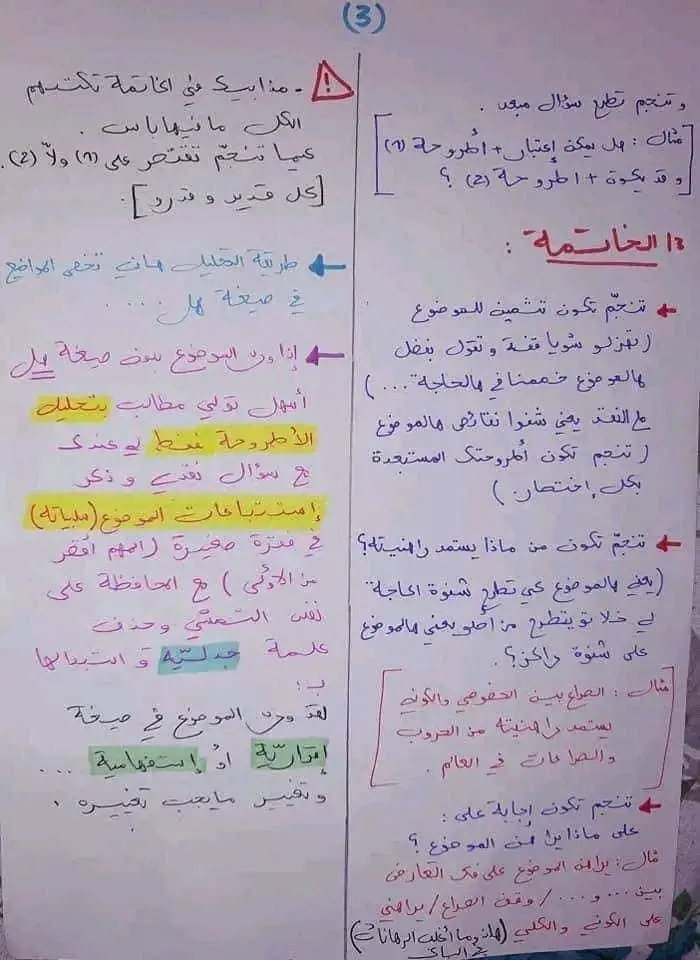 (3)
و تنجم تطرح سؤال مبعد .
مثال : هل يمكن إعتبار + أطروحة (1)
و قد يكون + اطروحة (2) ؟
3/ الخاتمة :
تنجّم تكون تثمين للموضوع
( تهزلو شويا قفة و تقول بفضل
هالموضوع خممنا في هالحاجة ... )
مع النقد يعني شنوا نقائص هالموضوع
( تنجم تكون أطروحتك المستبعدة
بكل إختصار )
تنجّم تكون من ماذا يستمد راهنيته؟
(يعني هالموضوع كي تطرح شنوة الحاجة
لي خلاتو يتطرح من أصلو يعني هالموضوع
على شنوة راكز؟ .
مثال : الصراع بين الخصوصي والكوني
يستمد راهنيته من الحروب
والصراعات في العالم .
تنجم تكون إجابة على :
على ماذا يراهن الموضوع ؟
مثال : يراهن الموضوع على فك التعارض
بين .... و ... / وقف الصراع / يراهن
على الكوني والكلي (هاذوما أغلب الرهانات
في الباك)
! - هذا بيدو في الخاتمة تكتبهم
الكل ما فيها باس .
كيما تنجّم تقتصر على (1) ولاّ (2) .
[كل قدير و قدرو] .
طريقة التحليل هاذي تخص المواضيع
في صيغة هل ....
إذا ورد الموضوع بدون صيغة هل
أسهل تولي مطالب بتحليل
الأطروحة فقط لي عندك
مع سؤال نقدي و ذكر
إستتباعات الموضوع (سلبياته)
في فقرة صغيرة ( المهم أقصر
من الأولى ) مع المحافظة على
نفس التمشي وحذف
كلمة جدليّه و استبدالها
بـ :
لقد ورد الموضوع في صيغة
إقراريّة أو إستفهامية ...
و تغيير ما يجب تغييره .